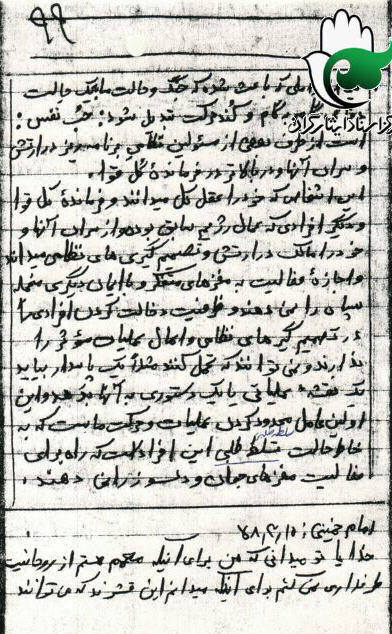 ۹۹
که باعث شده که جنگ و حالت ما بیک حالت
گام به گام و کُند حرکت تبدیل شود: حُبّ نفس:
است از طرف بعضی از مسئولین نظامی برنامه ریز در ارتش
و سران آنها و در بالاتر در فرماندهٔ کل قوا.
این اشخاص که خود را عقل کل میدانند و فرماندهٔ کل قوا
و دیگر افرادی که عمال رژیم سابق بوده و از سران آنها و
خود را مالک در ارتش و تصمیم گیری های نظامی میدانند
و اجازهٔ فعالیت به مغزهای متفکر و یا ایان دیگری منجمله
سپاه را نمی دهند و ظرفیت دخالت کردن افرادی را
در تصمیم گیر های نظامی و اعمال عملیات مؤثر را
ندارند و نمی توانند که تحمل کنند مثلاً یک پاسدار بیاید
یک نقشه عملیاتی یا یک دستوری به آنها بدهد و این
اولین عامل محدود کردن عملیات و حرکت ماست که به
خاطر حالت تسلط طلبی این افراد است که راه برای
سلطه طلبی
فعالیت مغزهای جوان و دلسوز را نمی دهند.
امام خمینی: ۶۸,۴,۱۰
خدایا تو میدانی که من برای آنیکه معمم هستم از روحانیت
طرفداری نمی کنم برای آنیکه میدانم این قشرند که می توانند